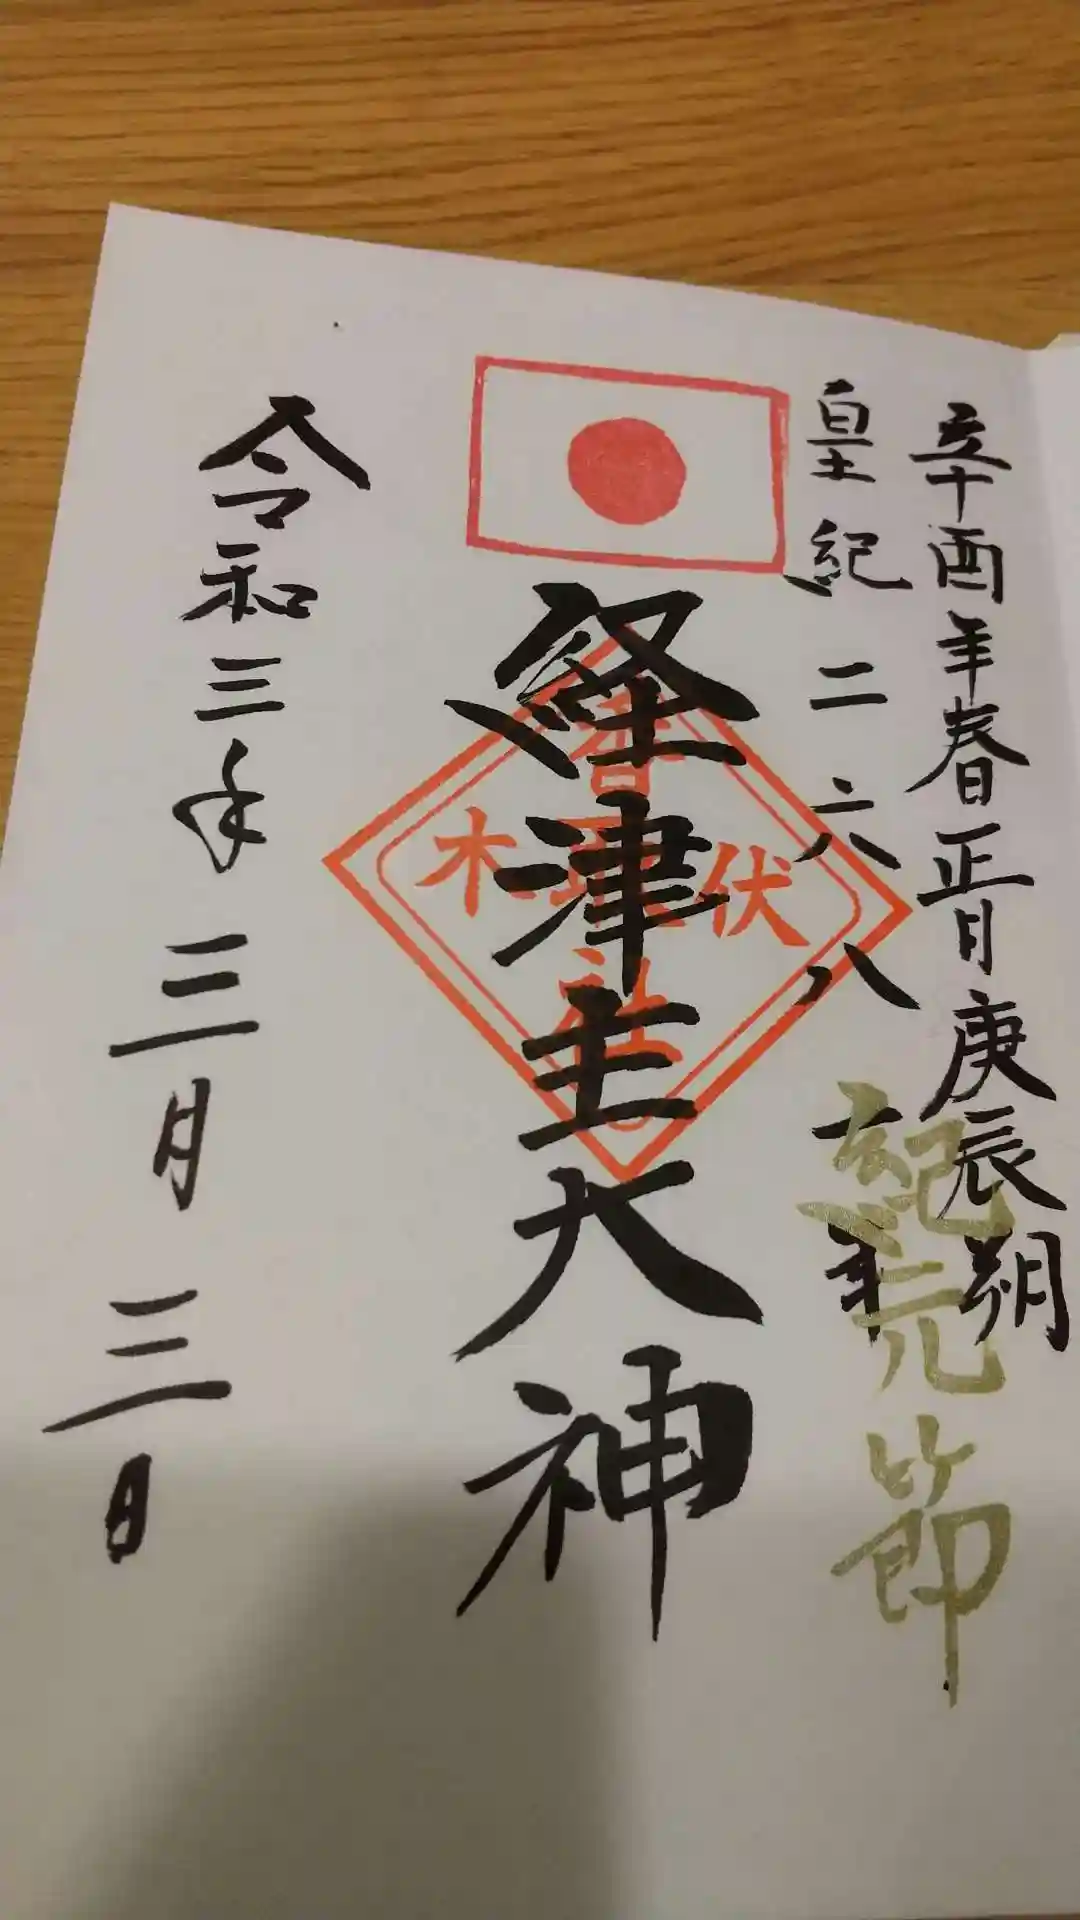 辛酉年春正月庚辰朔
皇紀二六八一年
紀元節
経津主大神
伏木
香取社
令和三年三月三日